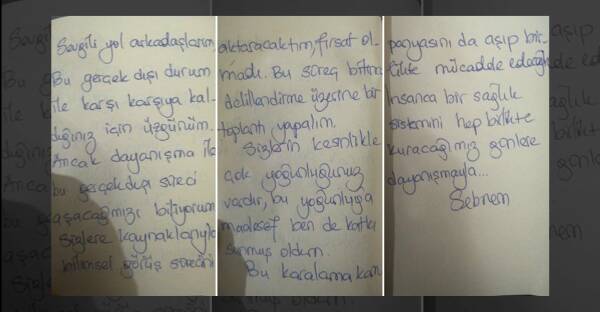 Sevgili yol arkadaşlarım,
Bu gerçek dışı durum
ile karşı karşıya kal-
dığınız için üzgünüm.
Ancak dayanışma ile
bu gerçekdışı süreci
aşacağımızı biliyorum
Sizlere kaynaklarıyla
bilimsel görüş sürecini
aktaracaktım, fırsat ol-
madı. Bu süreç bitince
delillendirme üzerine bir
toplantı yapalım.
Sizlerin kesinlikle
çok yoğunluğunuz
vardır, bu yoğunluğa
maalesef ben de katkı
sunmuş oldum.
Bu karalama kam
panyasını da aşıp bir-
likte mücadele edeceğiz
İnsanca bir sağlık
sistemini hep birlikte
kuracağımız günlere
dayanışmayla...
Şebnem